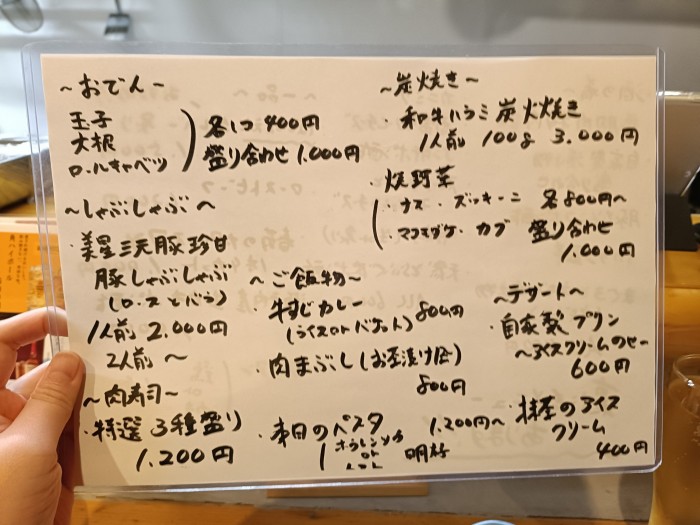 ~おでん~
玉子
大根
ロールキャベツ
各1つ 400円
盛り合わせ 1.000円
~しゃぶしゃぶ~
・美星三元豚珍甘
豚しゃぶしゃぶ
(ロースとバラ)
1人前 2.000円
2人前 ~
~肉寿司~
・特選 3種盛り
1.200円
~炭焼き~
・和牛ハラミ炭火焼き
1人前 100g 3.000円
・焼野菜
・ナス・ズッキーニ 各800円~
マコモダケ・カブ 盛り合わせ
1.000円
~ご飯物~
・牛すじカレー 800円
(ライス or バケット)
・肉まぶし(お茶漬け風)
800円
・本日のパスタ 1.200円~
ホウレンソウ
or 明太
トマト
~デザート~
・自家製プリン
~アイスクリームのせ~
600円
・抹茶のアイス
クリーム
400円